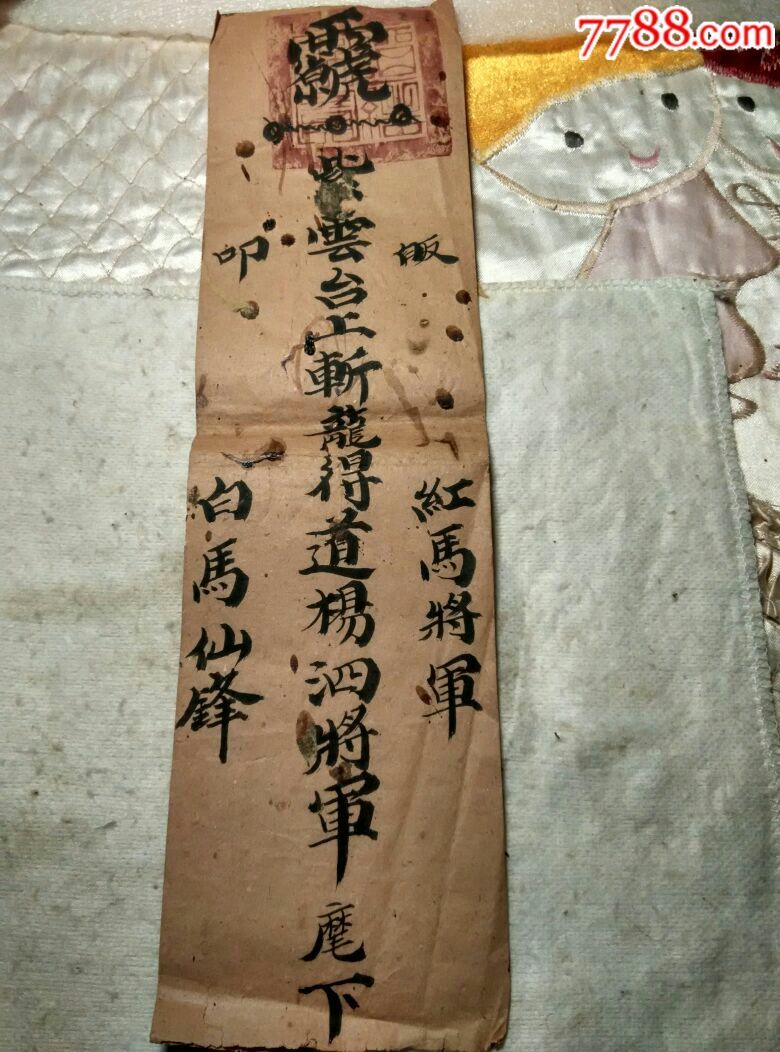 7788.com
皈
紅馬將軍
紫雲台上斬龍得道楊泗將軍麾下
叩
白馬仙鋒